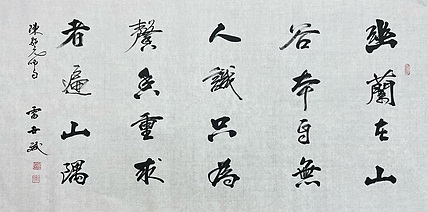 幽蘭在山
谷本自無
人識只為
馨香重求
者遍山隅
陳毅元帥句